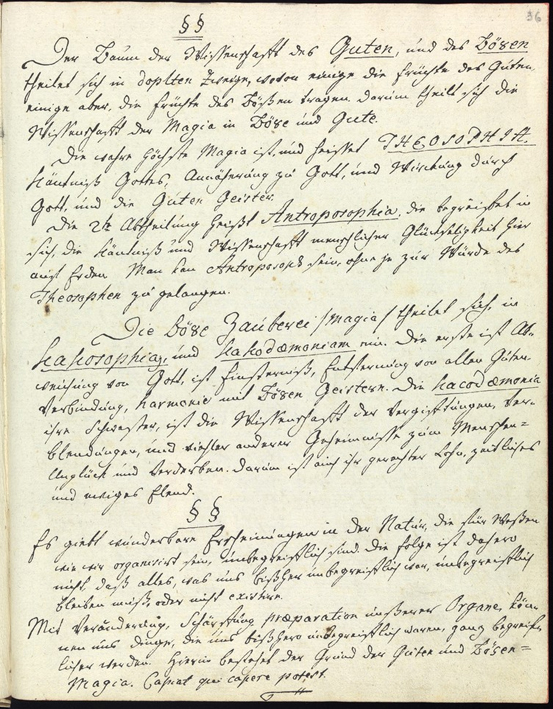 36
§ §
Der Baum der Wissenschafft des Guten, und des Bösen
theilet sich in doplten Zweige, wovon einige die Früchte des Guten
einige aber, die Früchte des Bößen tragen, darum theilt sich die
Wissenschafft der Magia in Böse und Gute.
Die wahre höchste Magia ist, und heisset THEOSOPHIA.
Käntniß Gottes, Annäherung zu Gott, und Würckung durch
Gott, und die Guten Geister.
Die 2te Abtheilung heißt Antroposophia. die begreifet in
sich, die Käntniß und Wissenschafft menschlicher Glückseligkeit hier
auf Erden. Man kan Antroposoph sein, ohne je zur Würde des
Theosophen zu gelangen.
Die Böse Zauberei /Magia/ theilet sich in
Kakosophiam, und Kakodæmoniam ein. Die erste ist Ab-
weichung von Gott, ist Finsterniß, Entfernung von allen Guten.
Verbindung, Harmonie mit Bösen Geistern. Die Kacodæmonia
ihre Schwester, ist die Wissenschafft der Vergifftungen, Ver-
blendungen, und vieler anderer Geheimnisse zum Menschen=
Unglück und Verderben. darum ist auch ihr gerechter Lohn, zeitliches
und ewiges Elend.
§ §
Es giebt wunderbare Erscheinungen in der Natur, die für Wesen
wie wir organisirt sein, unbegreiflich sind die Folge ist dahero
nicht, daß alles, was uns bißher unbegreiflich war, unbegreiflich
bleiben muß, oder nicht existire.
Mit Veränderung, Schärffung præparation unßerer Organe, kön-
nen uns dinge, die uns bißhero unbegreiflich waren, ganz begreif-
licher werden. Hierin bestehet der Grund der Guten und Bösen=
Magia. Capiat qui capere potest.